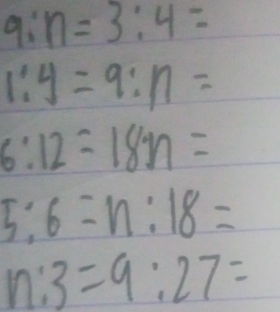 9:n=3:4=
1:4=9:n=
6:12=18:n=
5:6=n:18=
n:3=9:27=